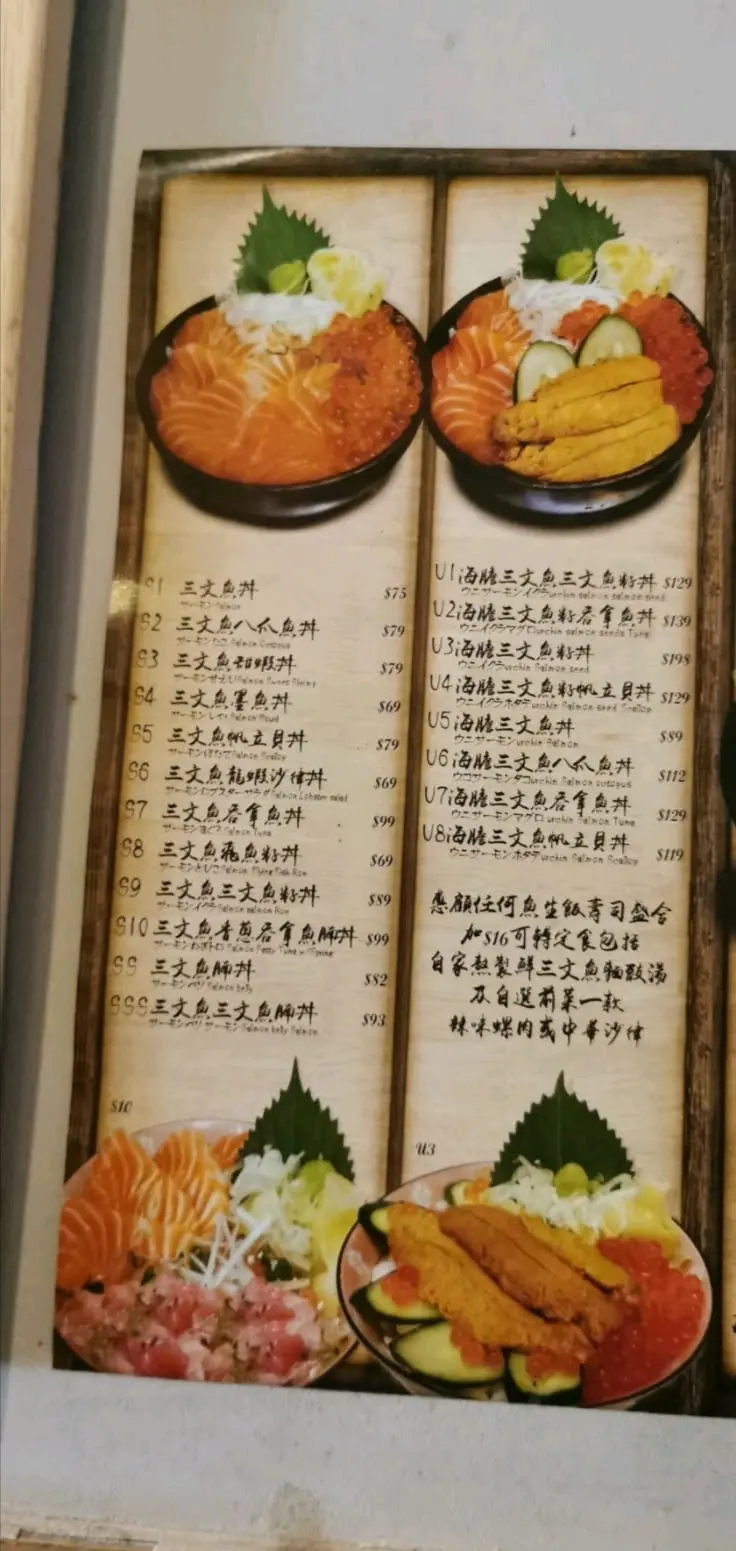 S1 三文魚丼 $75
サーモン Salmon
S2 三文魚八爪魚丼 $79
サーモンたこ Salmon Octopus
S3 三文魚甜蝦丼 $79
サーモン甘えび Salmon Sweet Shrimp
S4 三文魚墨魚丼 $69
サーモン いか Salmon Squid
S5 三文魚帆立貝丼 $79
サーモンほたて Salmon Scallop
S6 三文魚龍蝦沙律丼 $69
サーモンロブスターサラダ Salmon Lobster salad
S7 三文魚吞拿魚丼 $99
サーモンまぐろ Salmon Tuna
S8 三文魚飛魚籽丼 $69
サーモンとびこ Salmon Flying Fish Roe
S9 三文魚三文魚籽丼 $89
サーモンイクラ Salmon salmon Roe
S10 三文魚香蔥吞拿魚腩丼 $99
サーモンねぎトロ Salmon Fatty Tuna w/
SS 三文魚腩丼 $82
サーモンベリ Salmon belly
SSS 三文魚三文魚腩丼 $93
サーモンベリ サーモン Salmon belly Salmon
S10
U1 海膽三文魚三文魚籽丼 $129
ウニサーモンイクラ urchin salmon salmon seed
U2 海膽三文魚籽吞拿魚丼 $139
ウニイクラマグロ urchin salmon seeds Tuna
U3 海膽三文魚籽丼 $198
ウニイクラ urchin Salmon seed
U4 海膽三文魚籽帆立貝丼 $129
ウニイクラホタテ urchin Salmon seed Scallop
U5 海膽三文魚丼 $89
ウニサーモン urchin Salmon
U6 海膽三文魚八爪魚丼 $112
ウニサーモンタコ urchin Salmon octopus
U7 海膽三文魚吞拿魚丼 $129
ウニサーモンマグロ urchin Salmon Tuna
U8 海膽三文魚帆立貝丼 $119
ウニサーモンホタテ urchin Salmon Scallop
惠顧任何魚生飯壽司盛合
加$16可轉定食包括
自家熬製鮮三文魚麵豉湯
及自選前菜一款
辣味螺肉或中華沙律
U3